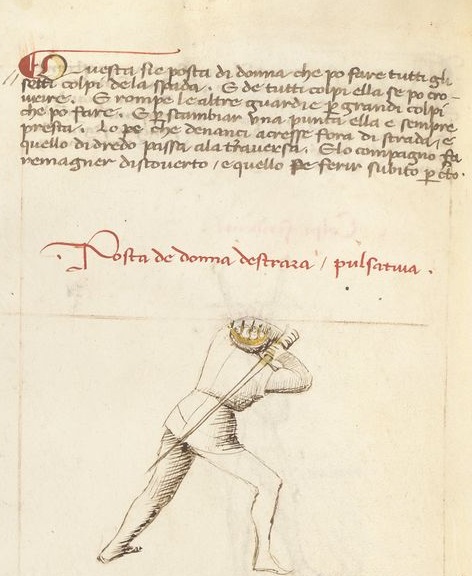 Questa sie posta di donna che po fare tutti gli
setti colpi dela spada. E de tutti colpi ella se po cro-
vrire. E rompe le altre guardie per grandi colpi
che po fare. E per scambiar una punta ella e sempre
presta. Lo pe che denanci acresse fora di strada, e
quello di dredo passa ala traversa. E lo compagno fa
remagner discoverto / e quello po ferir subito per certo.
Posta de donna destraza / pulsativa.